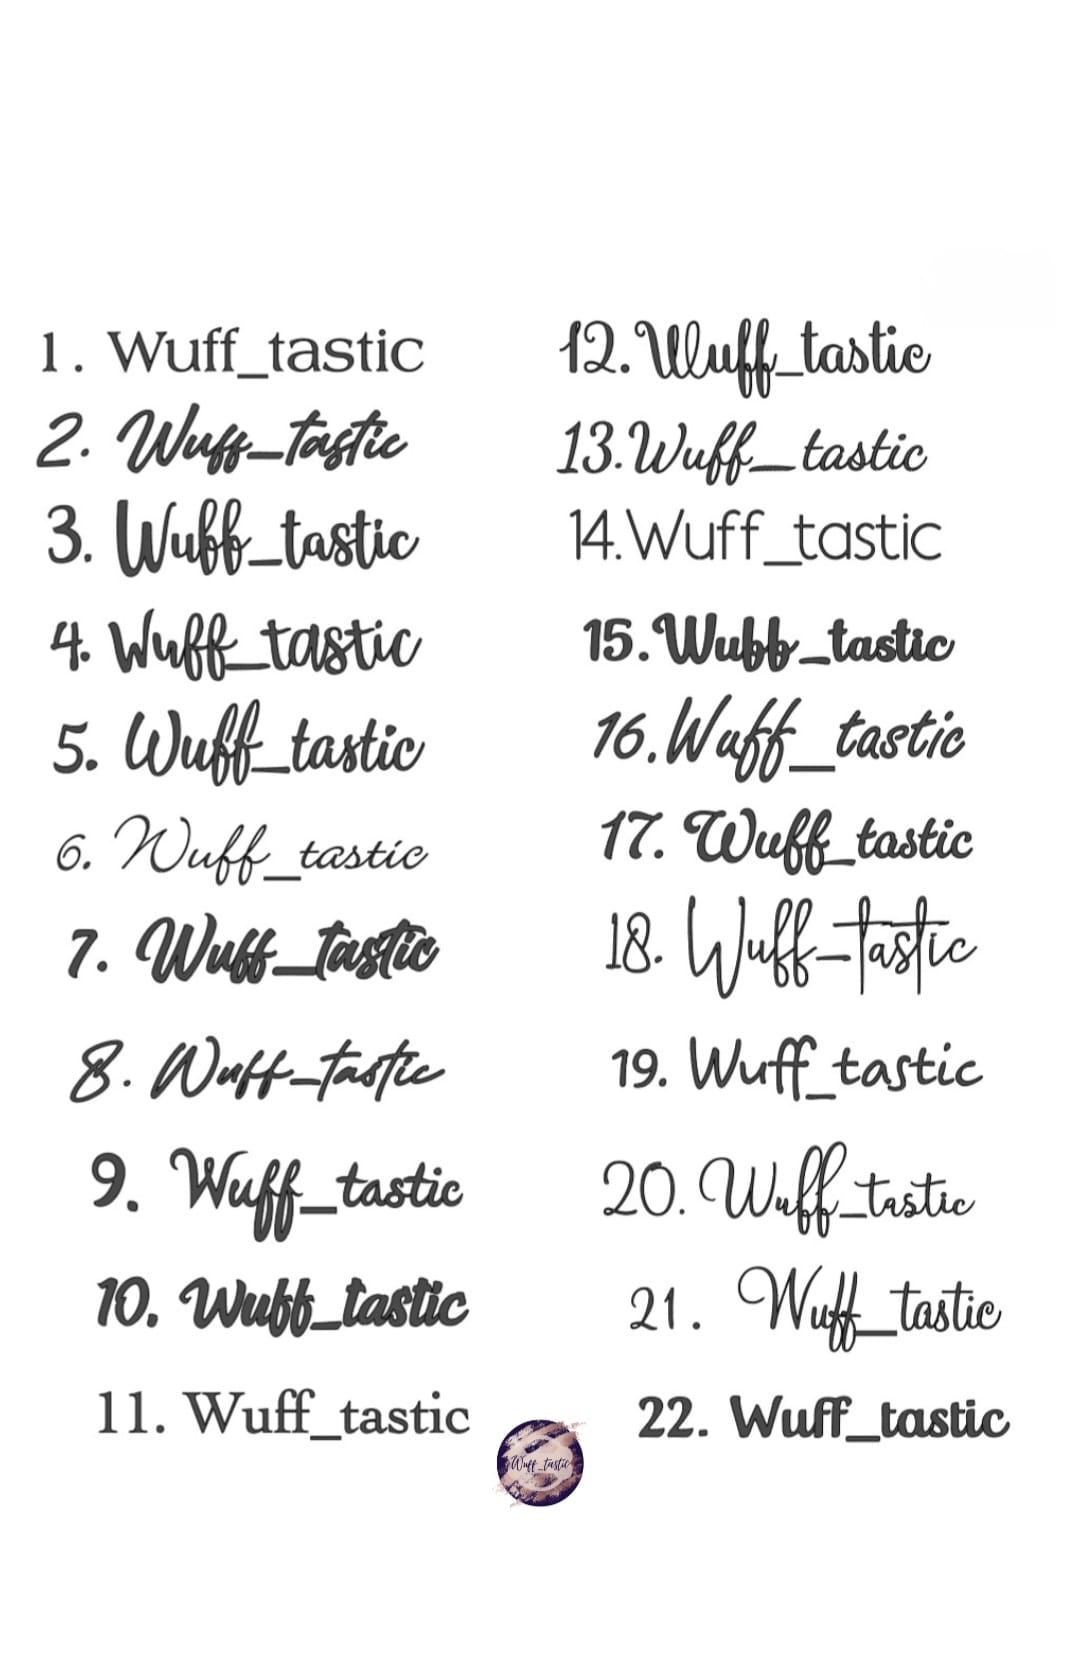 1. Wuff_tastic
2. Wuff_tastic
3. Wuff_tastic
4. Wuff_tastic
5. Wuff_tastic
6. Wuff_tastic
7. Wuff_tastic
8. Wuff_tastic
9. Wuff_tastic
10. Wuff_tastic
11. Wuff_tastic
12. Wuff_tastic
13. Wuff_tastic
14. Wuff_tastic
15. Wuff_tastic
16. Wuff_tastic
17. Wuff_tastic
18. Wuff_tastic
19. Wuff_tastic
20. Wuff_tastic
21. Wuff_tastic
22. Wuff_tastic
Wuff_tastic